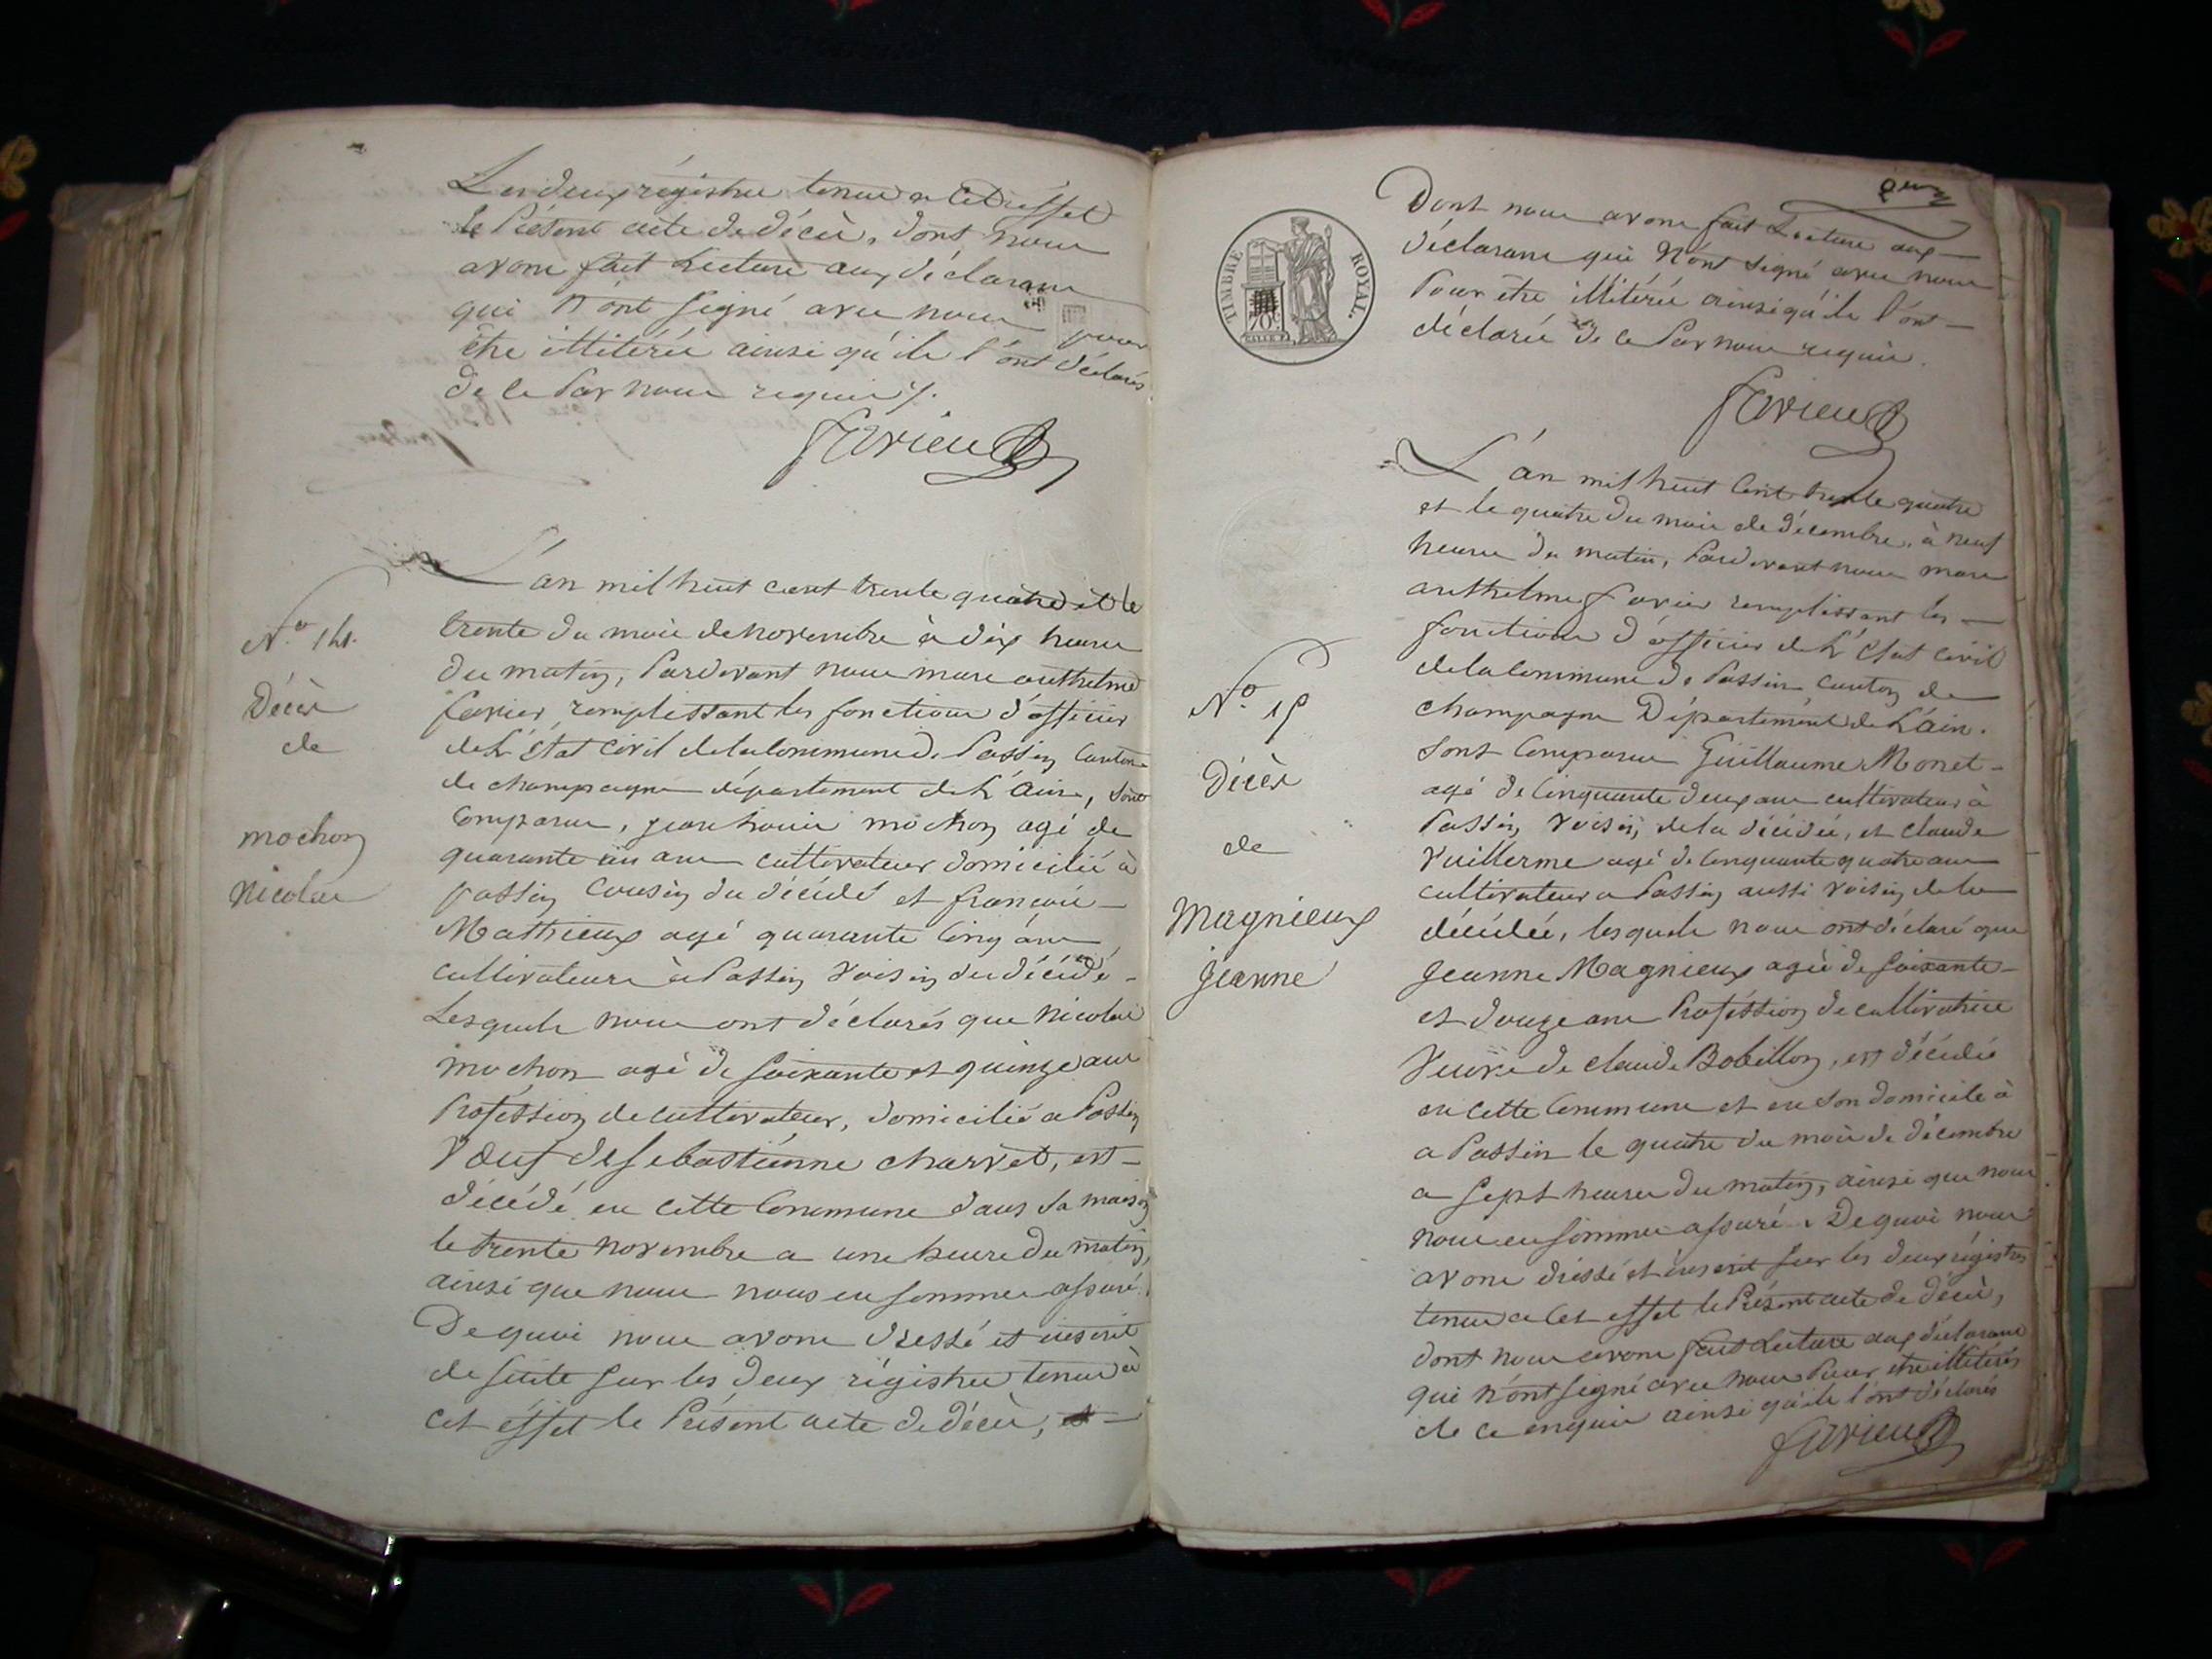 Les deux régistres tenus a cet effet
le Présent acte de décès, dont nous
avons fait Lecture aux déclarans
qui n'ont signé avec nous pour
être illitérés ainsi qu'ils l'ont déclarés
de ce Par nous requis ./.
favier
L'an mil huit cent trente quatre et le
N.o 14.
trente du mois de novembre à dix heures
du matin, Pardevant nous marc anthelme
Décès
favier remplissant les fonctions d'officier
de
de L'État civil de la Commune de Passin Canton
de champagne département de L'Ain, sont
Comparus, jean louis mochon agé de
mochon
quarante un ans cultivateur domicilié à
Nicolas
passin Cousin du décédé et françois
Mathieux agé quarante Cinq ans
cultivateurs à Passin Voisin du décédé
Lesquels nous ont déclarés que Nicolas
mochon agé de soixante et quinze ans
Proféssion de cultivateur, domicilié a Passin
Vœuf de sebastienne charvet, est
décédé en cette Commune dans sa maison
le trente novembre a une heure du matin,
ainsi que nous nous en sommes assuré.
De quoi nous avons dressé et inscrit
de suite sur les deux régistres tenus à
cet éffet le Présent acte de décès,
TIMBRE ROYAL.
70c
Dont nous avons fait Lecture aux
déclarans qui N'ont signé avec nous
Pour être illitérés ainsi qu'ils l'ont
déclarés de ce Par nous requis.
favier
L'an mil huit Cent trente quatre
et le quatre du mois de décembre, à neuf
heures du matin, Pardevant nous marc
anthelme favier remplissant les
fonctions d'officier de L'État Civil
de la Commune de Passin canton de
N.o 15
champagne Département de L'ain.
Sont Comparus Guillaume Monet
Décès
agé de Cinquante deux ans cultivateur à
Passin, Voisin, de la décédée, et claude
de
Vuillerme agé de Cinquante quatre ans
cultivateur a Passin aussi Voisin de la
Magnieux
décédée, lesquels nous ont déclaré que
Jeanne
Jeanne Magnieux agée de soixante
et douze ans Proféssion de cultivatrice
Veuve de claude Bobillon, est décédée
en cette Commune et en son domicile à
a Passin le quatre du mois de décembre
a sept heures du matin, ainsi que nous
nous en sommes assuré. De quoi nous
avons dréssé et inscrit sur les deux régistres
tenus a cet effet le Présent acte de décès,
dont nous avons fait Lecture aux déclarans
qui N'ont signé avec nous Pour être illitérés
de ce enquis ainsi qu'ils l'ont déclarés
favier